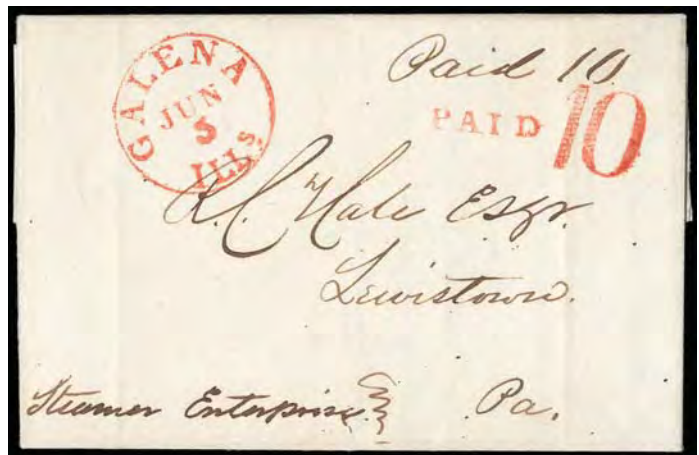 Paid 10
GALENA
JUN
5
ILLs
PAID 10
R.C. Hale Esqr.
Lewistown.
Steamer Enterprise
Pa.